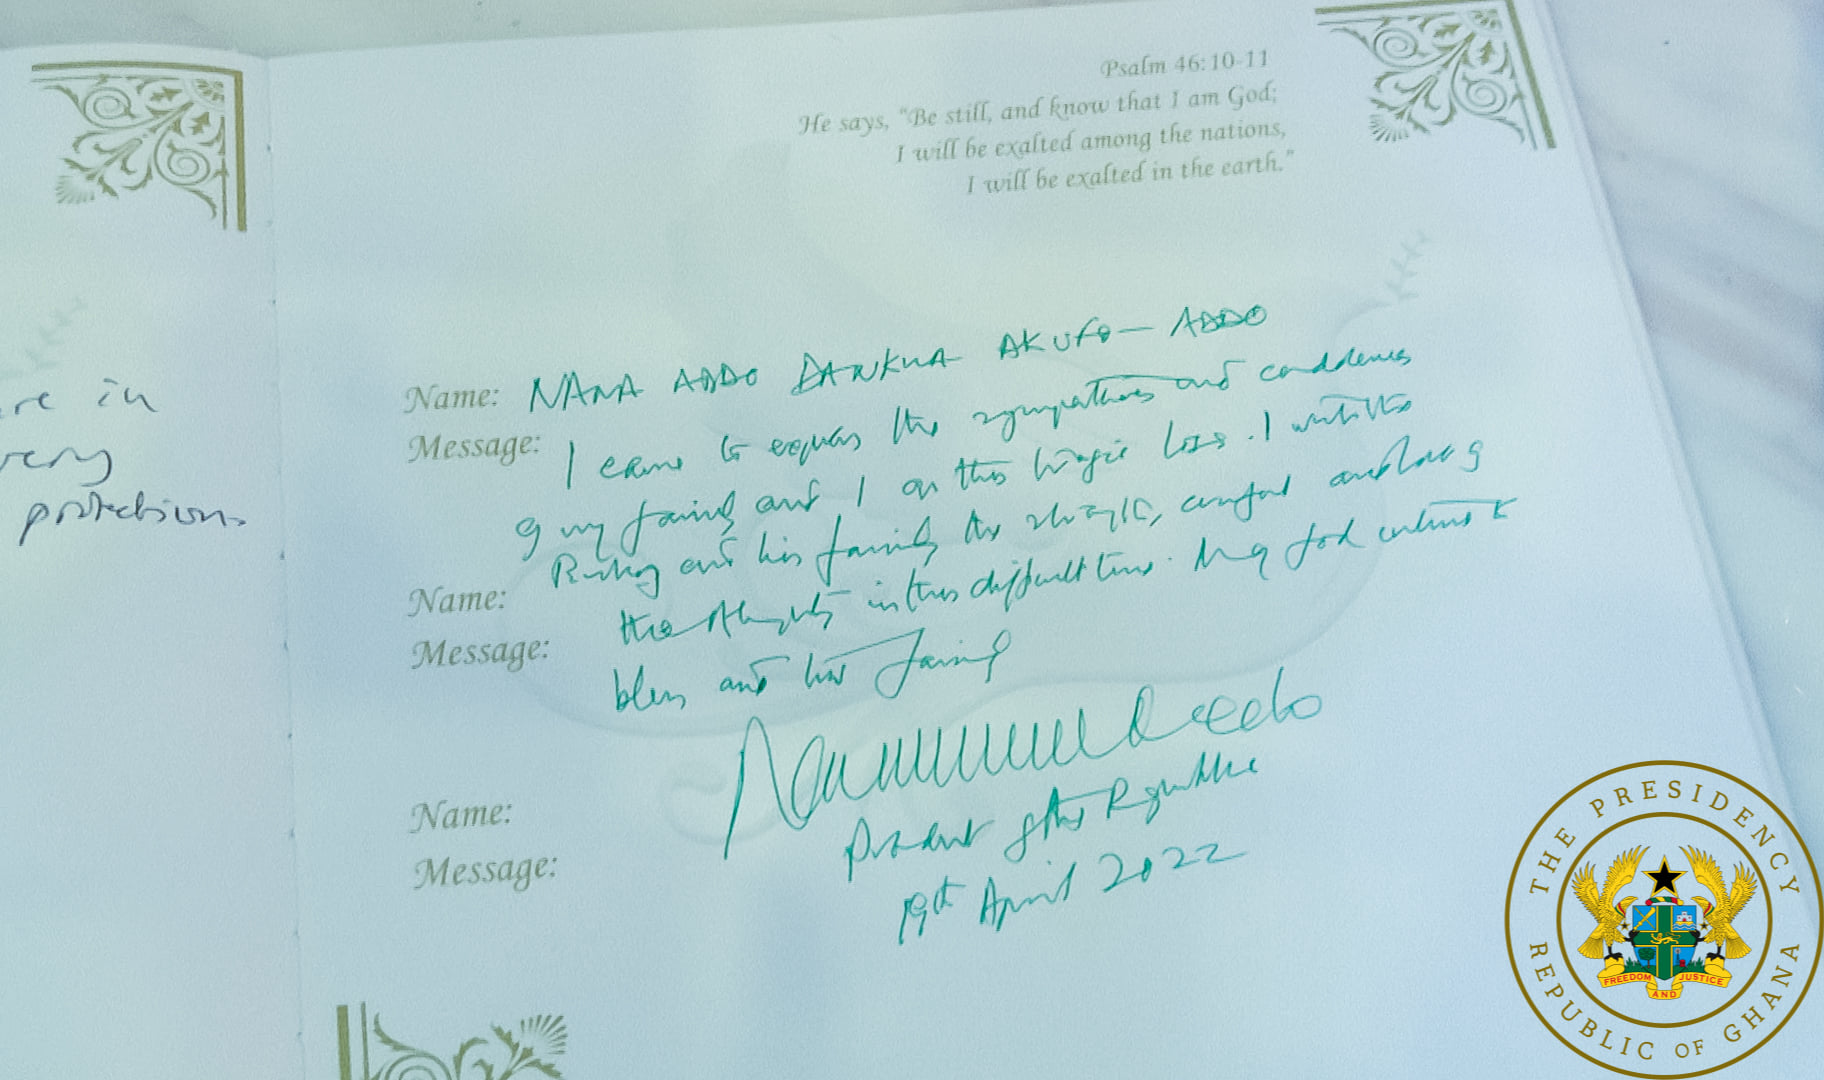 Psalm 46:10-11
He says, "Be still, and know that I am God;
I will be exalted among the nations,
I will be exalted in the earth."
re in
very
protections
Name: NANA ADDO DANKWA AKUFO-ADDO
Message: I came to express the sympathies and condolences
of my family and I on this tragic loss. I wish
and his family the strength, comfort and
Name:
in this difficult time. May God continue to
Message:
bless and his family
President of the Republic
19th April 2022
Name:
Message:
THE PRESIDENCY
REPUBLIC OF GHANA
FREEDOM AND JUSTICE